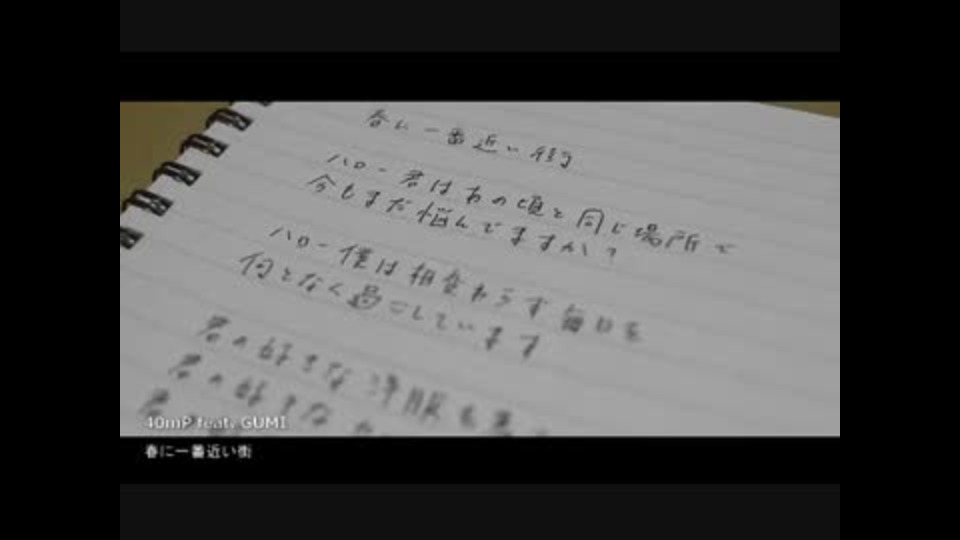 春に一番近い街
ハロー君はあの頃と同じ場所で
今もまだ悩んでますか?
ハロー僕は相変わらず毎日を
何となく過ごしています
君の好きな洋服も
君の好きな
君の
40mP feat. GUMI
春に一番近い街